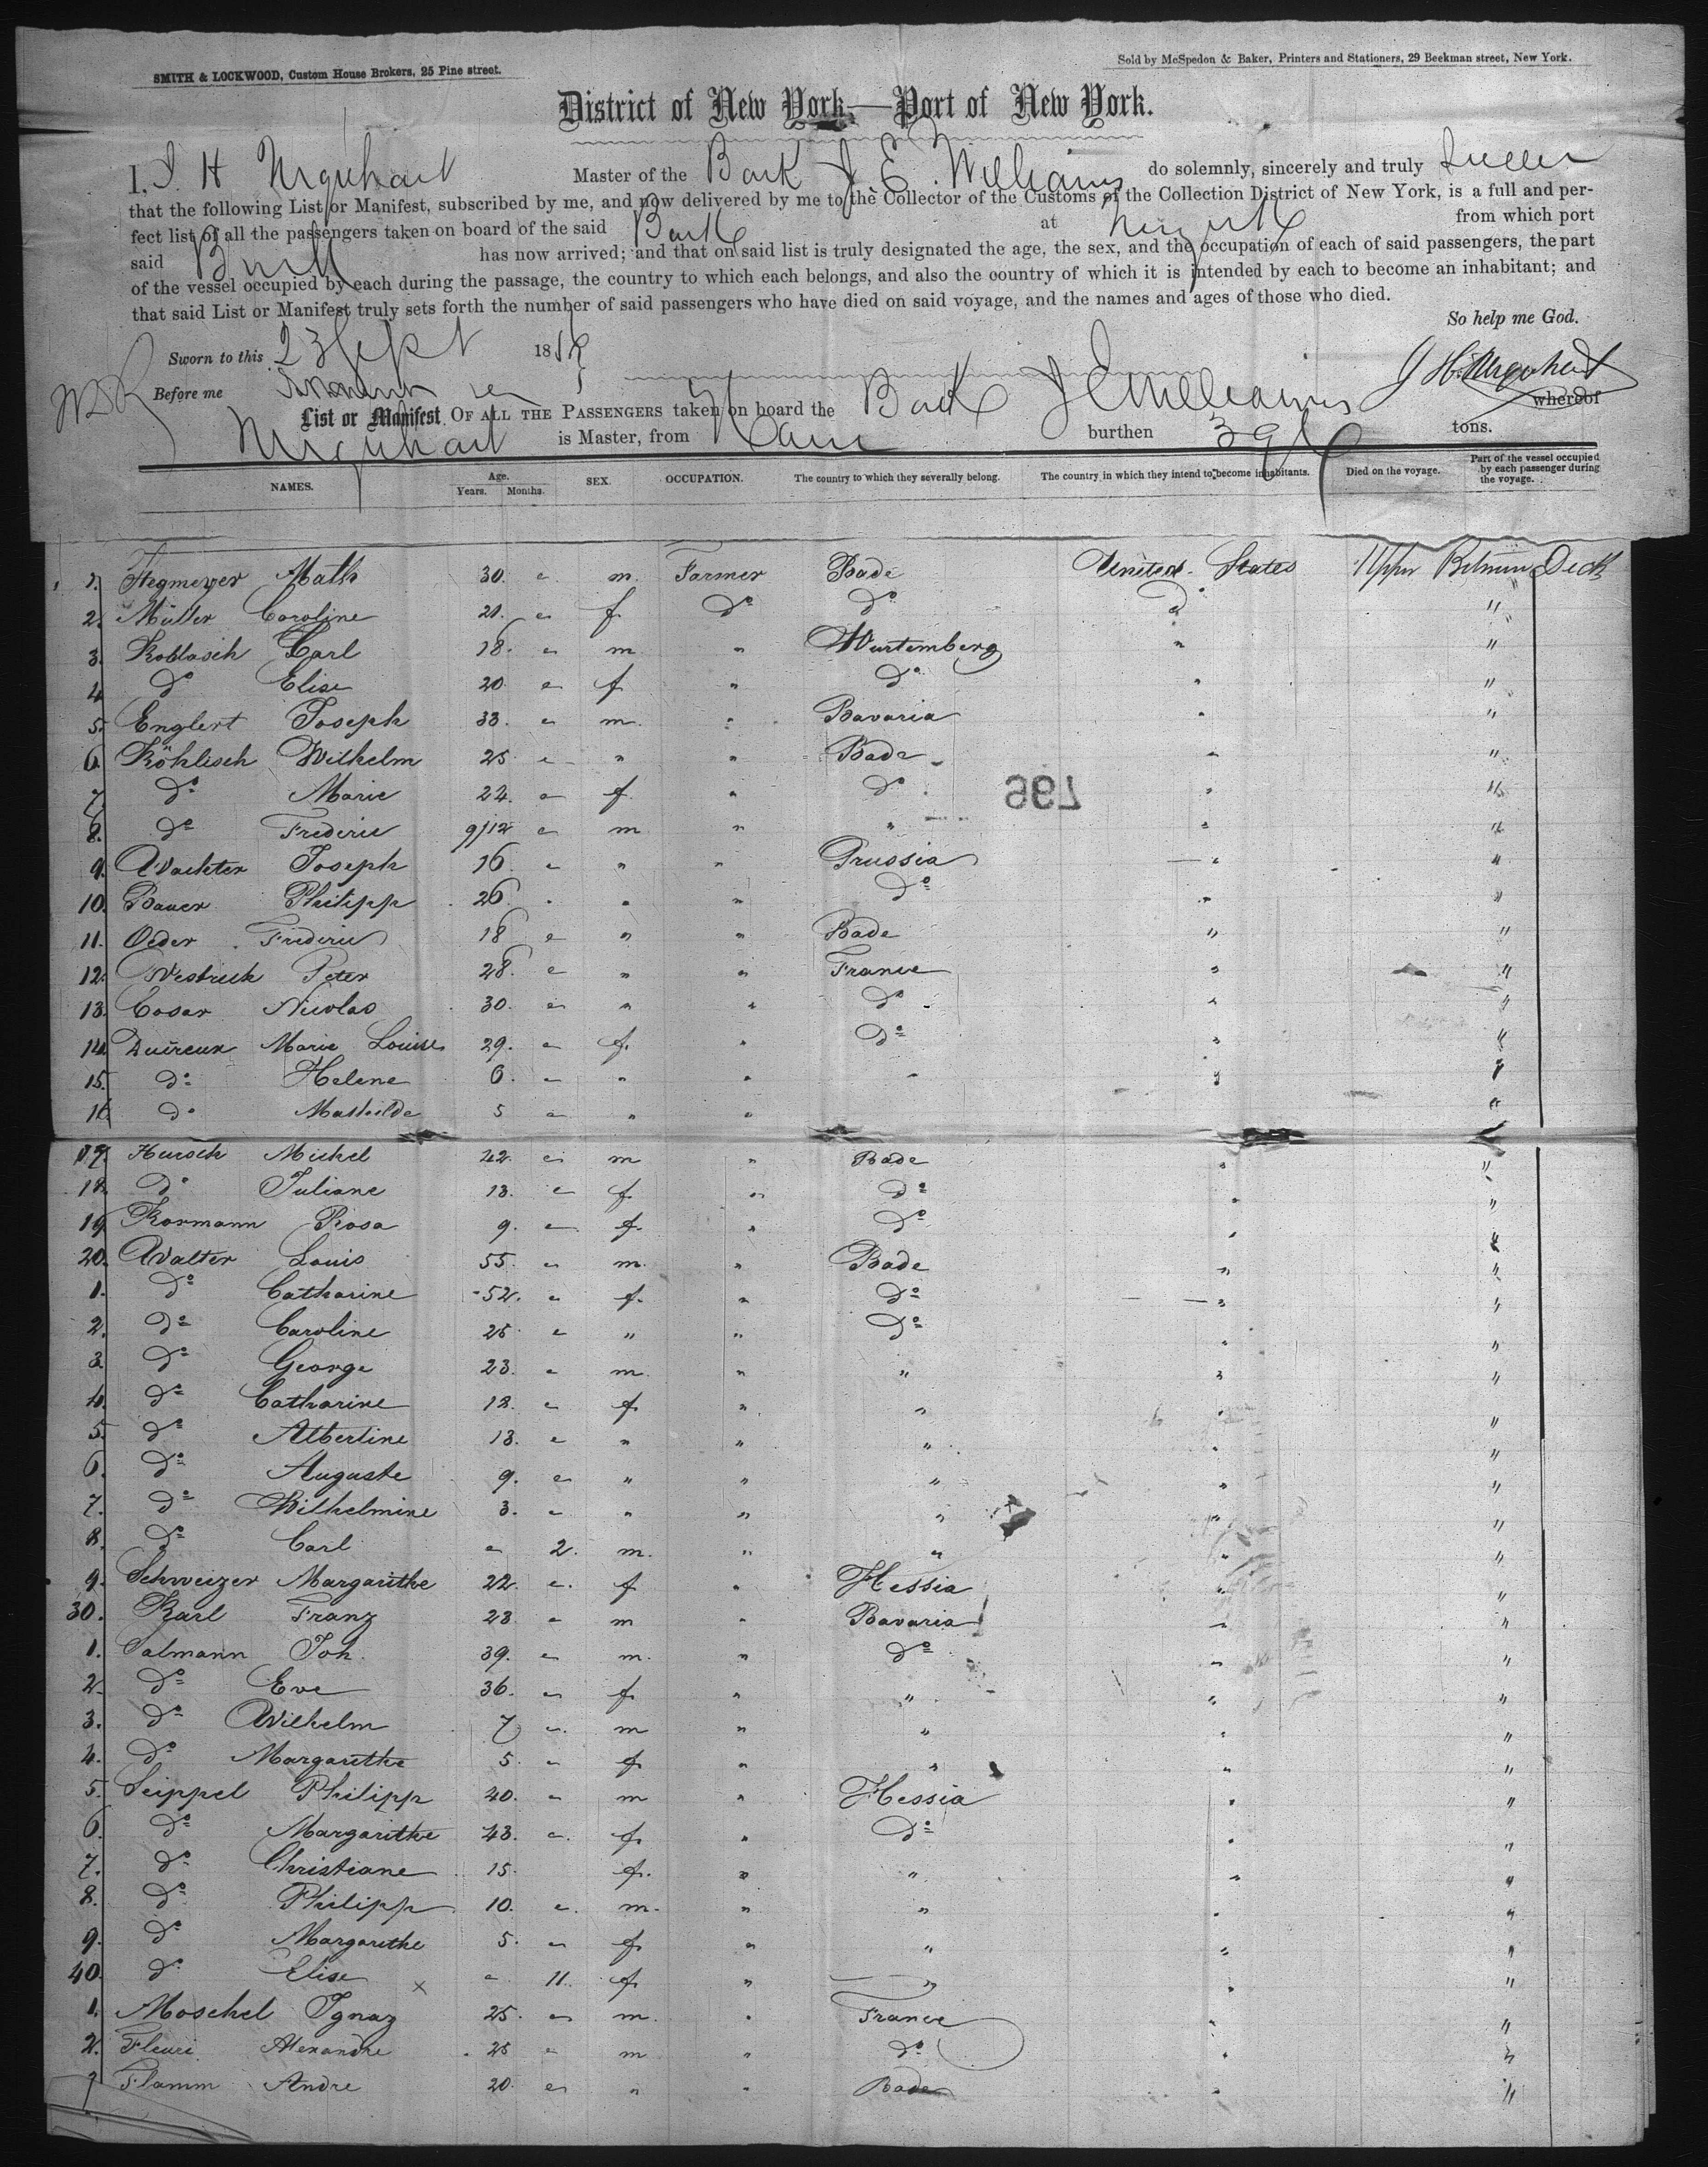 SMITH & LOCKWOOD, Custom House Brokers, 25 Pine street.
Sold by McSpedon & Baker, Printers and Stationers, 29 Beekman street, New York.
District of New York—Port of New York.
I, J. H Urquhart Master of the Bark J E. Williams do solemnly, sincerely and truly
that the following List or Manifest, subscribed by me, and now delivered by me to the Collector of the Customs of the Collection District of New York, is a full and per-
fect list of all the passengers taken on board of the said Bark at from which port
said Bark has now arrived; and that on said list is truly designated the age, the sex, and the occupation of each of said passengers, the part
of the vessel occupied by each during the passage, the country to which each belongs, and also the country of which it is intended by each to become an inhabitant; and
that said List or Manifest truly sets forth the number of said passengers who have died on said voyage, and the names and ages of those who died.
So help me God.
Sworn to this 23 Sept 185
J H. Urquhart
Before me
List or Manifest OF ALL THE PASSENGERS taken on board the Bark J E Williams whereof
Urquhart is Master, from burthen tons.
NAMES. Age. Years. Months. SEX. OCCUPATION. The country to which they severally belong. The country in which they intend to become inhabitants. Died on the voyage. Part of the vessel occupied by each passenger during the voyage.
1. Hegmeyer Math 30. " m. Farmer Bade United States Upper Between Deck
2. Müller Caroline 21. " f. do do do "
3. Koblasch Carl 18. " m " Wurtemberg " "
4 do Elise 20. " f " do " "
5. Englert Joseph 33. " m. " Bavaria " "
6. Köhlisch Wilhelm 25 " " " Bade " "
7 do Marie 22. " f. " do " "
8. do Frederic 9/12 " m " " " "
9. Wachter Joseph 16. " " " Prussia " "
10. Bauer Philipp 26. " " " do " "
11. Oeder Frederic 18 " " " Bade " "
12. Westrick Peter 28. " " " France " "
13. Cosar Nicolas 30. " " " do " "
14. Duireux Marie Louise 29. " f. " do " "
15. do Helene 6. " " " " " "
16 do Mathilde 5 " " " " "
17. Hursch Michel 42. " m " Bade " "
18. do Juliane 13. " f. " do " "
19 Kormann Rosa 9. " f. " do " "
20. Walter Louis 55. " m. " Bade " "
1. do Catharine 52. " f. " do " "
2. do Caroline 25 " " " do " "
3. do George 23. " m. " " " "
4. do Catharine 18. " f. " " " "
5. do Albertine 13. " " " " " "
6. do Auguste 9. " " " " " "
7. do Wilhelmine 3. " " " " " "
8. do Carl " 2. m. " " " "
9. Schweizer Margarithe 22. " f " Hessia " "
30. Karl Franz 28. " m " Bavaria " "
1. Salmann Joh. 39. " m. " do " "
2. do Eve 36. " f. " " " "
3. do Wilhelm 7 " m " " " "
4. do Margarithe 5. " f. " " " "
5. Seippel Philipp 40. " m " Hessia " "
6. do Margarithe 43. " f. " do " "
7. do Christiane 15. f. " " " "
8. do Philipp 10. " m. " " " "
9. do Margarithe 5. " f. " " " "
40. do Elise x " 11. f. " " " "
1. Moschel Ignaz 25. " m. " France " "
2. Fleuri Alexandre 25 " m " do " "
Flamm Andre 20. " " " Bade " "
796